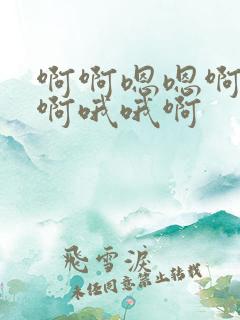 啊啊嗯嗯啊
啊哦哦啊
飛雪淚
未经同意禁止转载